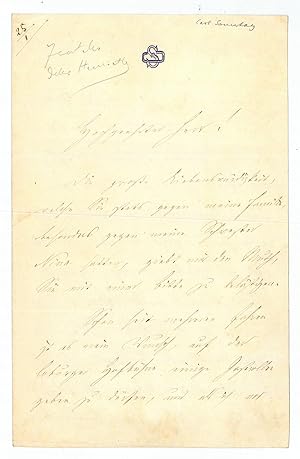 25/1
Carl Sonntag
Hochgeehrter Herr!
Die große Liebenswürdigkeit,
welche Sie stets gegen meine Familie,
besonders gegen meine Schwester
Nina hatten, giebt mir den Muth,
Sie mit einer Bitte zu belästigen.
Schon seit mehreren Jahren
ist es mein Wunsch, auf der
Coburger Hofbühne einige Gastrollen
geben zu dürfen, und als ich vor